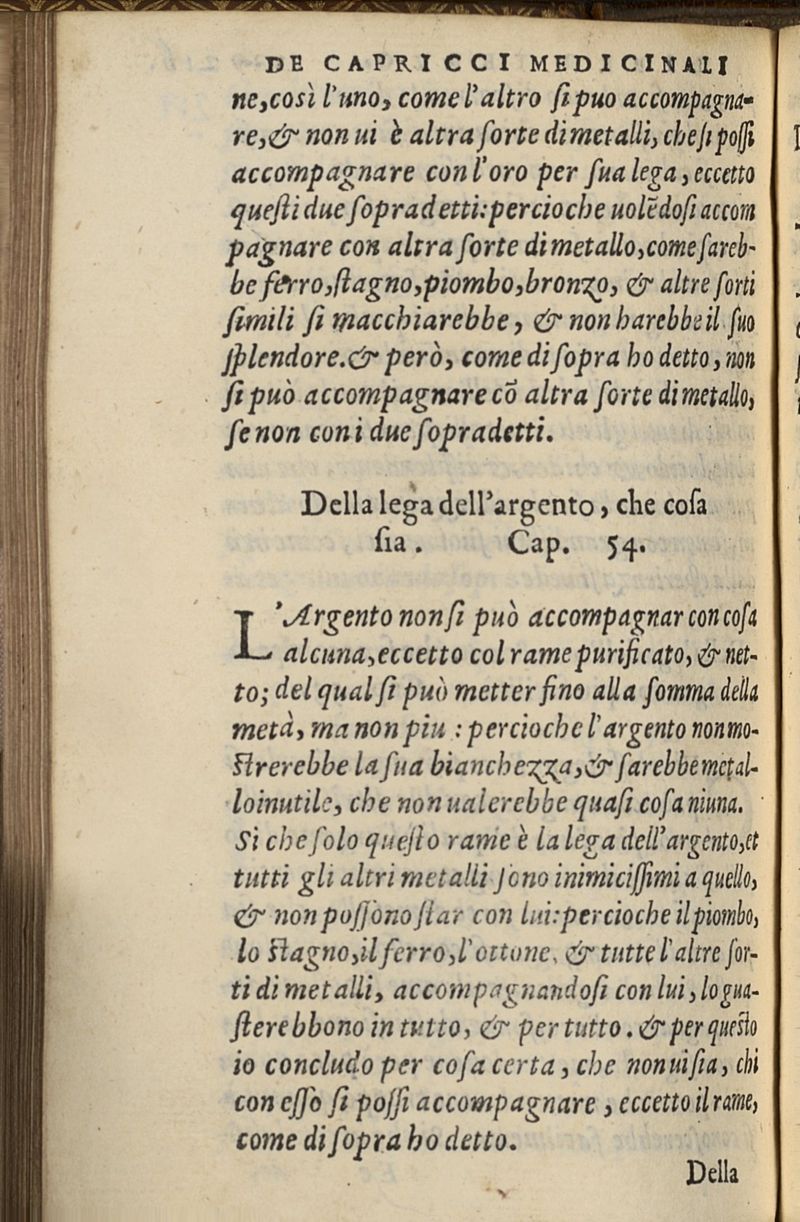 DE CAPRICCI MEDICINALI
ne, così l'uno, come l'altro ſi puo accompagna-
re, & non ui è altra ſorte di metalli, che ſi poſſi
accompagnare con l'oro per ſua lega, eccetto
queſti due ſopradetti: percioche uolẽdoſi accom
pagnare con altra ſorte di metallo, come ſareb-
be ferro, ſtagno, piombo, bronzo, & altre ſorti
ſimili ſi macchiarebbe, & non harebbe il ſuo
ſplendore. & però, come di ſopra ho detto, non
ſi può accompagnare cõ altra ſorte di metallo,
ſe non con i due ſopradetti.
Della lega dell'argento, che coſa
ſia. Cap. 54.
L'Argento non ſi può accompagnar con coſa
alcuna, eccetto col rame purificato, & net-
to; del qual ſi può metter fino alla ſomma della
metà, ma non piu : percioche l'argento non mo-
ſtrerebbe la ſua bianchezza, & ſarebbe metal-
lo inutile, che non ualerebbe quaſi coſa niuna.
Si che ſolo queſto rame è la lega dell'argento, et
tutti gli altri metalli ſono inimiciſſimi a quello,
& non poſſono ſtar con lui: percioche il piombo,
lo ſtagno, il ferro, l'ottone, & tutte l'altre ſor-
ti di metalli, accompagnandoſi con lui, lo gua-
ſterebbono in tutto, & per tutto. & per queſto
io concludo per coſa certa, che non ui ſia, chi
con eſſo ſi poſſi accompagnare, eccetto il rame,
come di ſopra ho detto.
Della